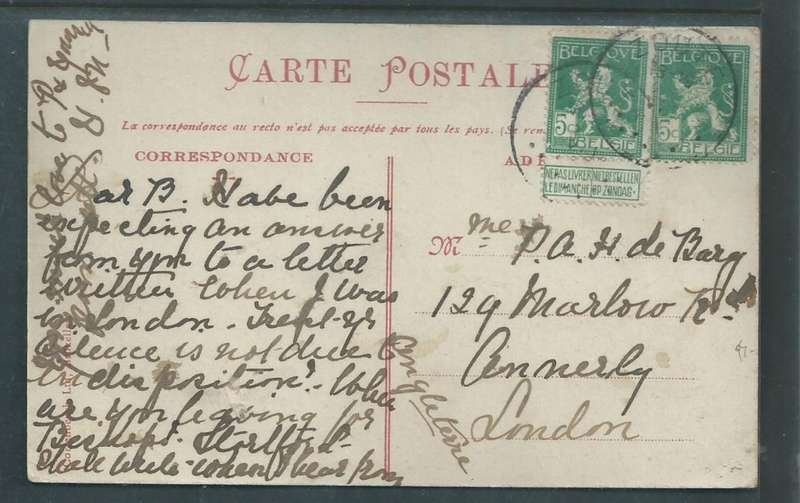 CARTE POSTALE
La correspondance au recto n'est pas acceptée par tous les pays. (Se ren
CORRESPONDANCE
AD
BELGIQUE
5c
BELGIË
BELGIQUE
5c
BELGIË
NE PAS LIVRER NIET BESTELLEN
LE DIMANCHE OP ZONDAG
ar B. Habe been
expecting an answer
from you to a letter
written when I was
in London. Trust yr
silence is not due to
indisposition. When
are you leaving for
Bishops Stortford. I
shall write when I hear from
love to
M me P. A. H. de Barg
129 Marlow Rd
Annerly
London
Angleterre